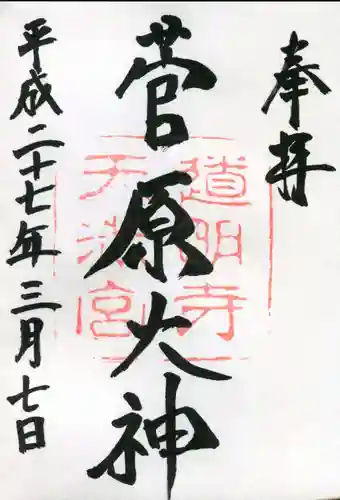 奉拝
菅原大神
平成二十七年三月七日
道明寺
天満宮